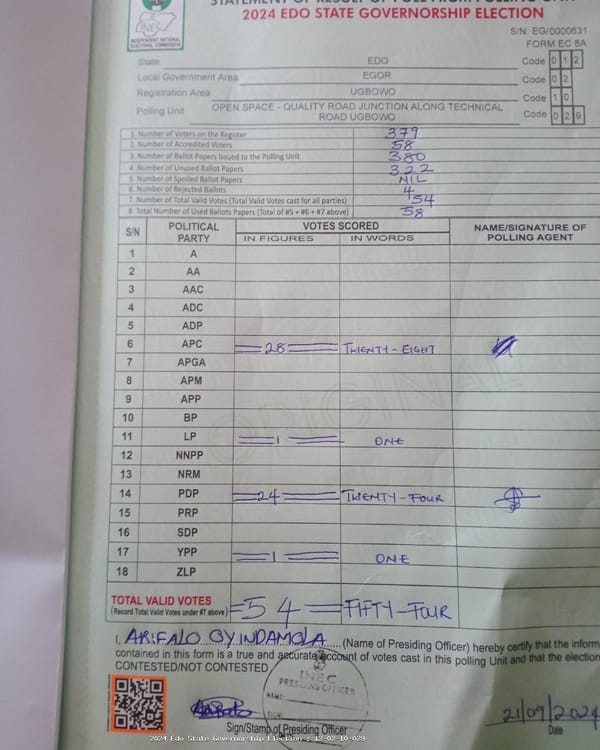 STATEMENT OF RESULT OF POLL FROM POLLING UNIT
2024 EDO STATE GOVERNORSHIP ELECTION
INDEPENDENT NATIONAL
ELECTORAL COMMISSION
S/N: EG/0000631
FORM EC 8A
State EDO Code 0 1 2
Local Government Area EGOR Code 0 2
Registration Area UGBOWO Code 1 0
Polling Unit OPEN SPACE - QUALITY ROAD JUNCTION ALONG TECHNICAL ROAD UGBOWO Code 0 2 9
1. Number of Voters on the Register 379
2. Number of Accredited Voters 58
3. Number of Ballot Papers Issued to the Polling Unit 380
4. Number of Unused Ballot Papers 322
5. Number of Spoiled Ballot Papers NIL
6. Number of Rejected Ballots 4
7. Number of Total Valid Votes (Total Valid Votes cast for all parties) 54
8. Total Number of Used Ballots Papers (Total of #5 + #6 + #7 above) 58
S/N POLITICAL PARTY VOTES SCORED NAME/SIGNATURE OF POLLING AGENT
IN FIGURES IN WORDS
1 A
2 AA
3 AAC
4 ADC
5 ADP
6 APC 28 TWENTY-EIGHT
7 APGA
8 APM
9 APP
10 BP
11 LP 1 ONE
12 NNPP
13 NRM
14 PDP 24 TWENTY-FOUR
15 PRP
16 SDP
17 YPP 1 ONE
18 ZLP
TOTAL VALID VOTES
(Record Total Valid Votes under #7 above) =54= FIFTY-FOUR
I, ARIFALO OYINDAMOLA (Name of Presiding Officer) hereby certify that the inform
contained in this form is a true and accurate account of votes cast in this polling Unit and that the election
CONTESTED/NOT CONTESTED
INEC
PRESIDING OFFICER
NAME:
SIGN:
21/09/2024
Sign/Stamp of Presiding Officer Date
2024 Edo State Governorship Election : 12-02-10-029